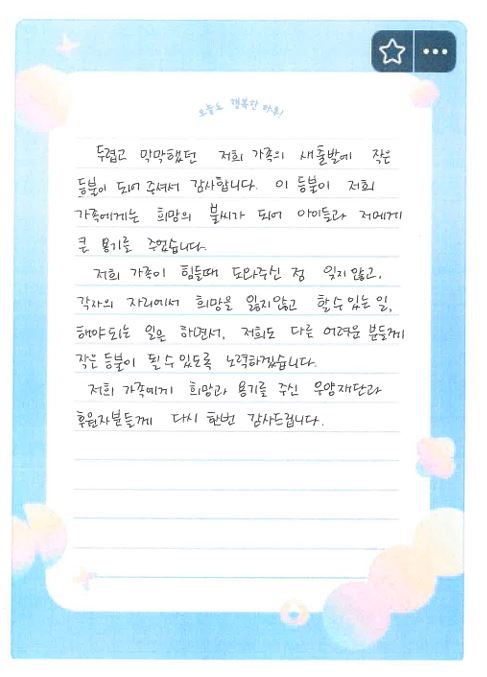 오늘도 행복한 하루!
두렵고 막막했던 저희 가족의 새출발에 작은
등불이 되어 주셔서 감사합니다. 이 등불이 저희
가족에게는 희망의 불씨가 되어 아이들과 저에게
큰 용기를 주었습니다.
저희 가족이 힘들때 도와주신 정 잊지않고,
각자의 자리에서 희망을 잃지않고 할수있는일,
해야되는 일은 하면서, 저희도 다른 어려운 분들께
작은 등불이 될수있도록 노력하겠습니다.
저희 가족에게 희망과 용기를 주신 우양재단과
후원자분들께 다시 한번 감사드립니다.